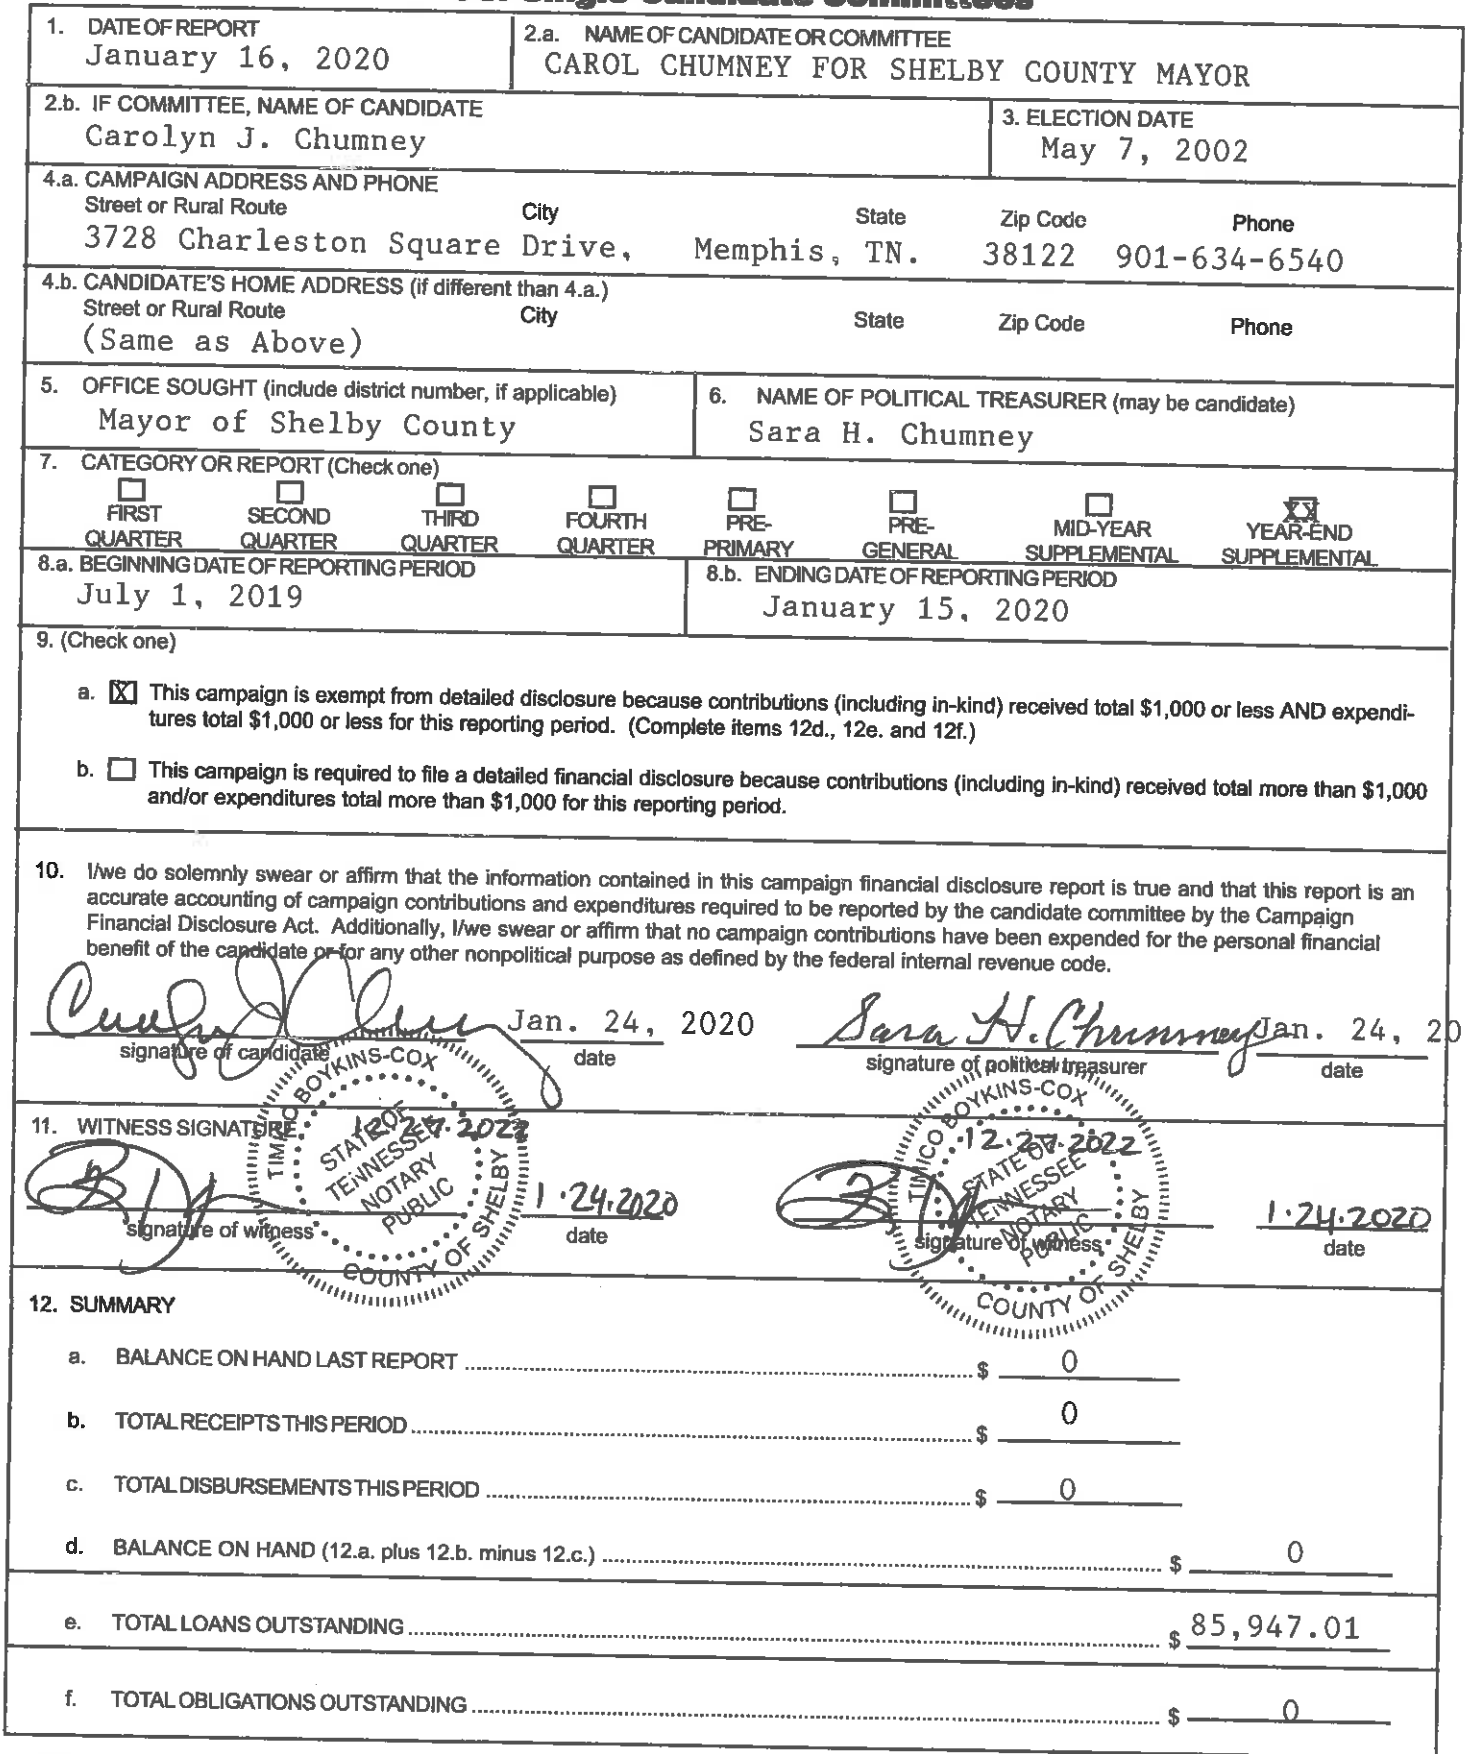 1. DATE OF REPORT
January 16, 2020
2.a. NAME OF CANDIDATE OR COMMITTEE
CAROL CHUMNEY FOR SHELBY COUNTY MAYOR
2.b. IF COMMITTEE, NAME OF CANDIDATE
Carolyn J. Chumney
3. ELECTION DATE
May 7, 2002
4.a. CAMPAIGN ADDRESS AND PHONE
Street or Rural Route City State Zip Code Phone
3728 Charleston Square Drive, Memphis, TN. 38122 901-634-6540
4.b. CANDIDATE'S HOME ADDRESS (if different than 4.a.)
Street or Rural Route City State Zip Code Phone
(Same as Above)
5. OFFICE SOUGHT (include district number, if applicable)
Mayor of Shelby County
6. NAME OF POLITICAL TREASURER (may be candidate)
Sara H. Chumney
7. CATEGORY OR REPORT (Check one)
FIRST QUARTER
SECOND QUARTER
THIRD QUARTER
FOURTH QUARTER
PRE-PRIMARY
PRE-GENERAL
MID-YEAR SUPPLEMENTAL
XX YEAR-END SUPPLEMENTAL
8.a. BEGINNING DATE OF REPORTING PERIOD
July 1, 2019
8.b. ENDING DATE OF REPORTING PERIOD
January 15, 2020
9. (Check one)
a. X This campaign is exempt from detailed disclosure because contributions (including in-kind) received total $1,000 or less AND expendi-
tures total $1,000 or less for this reporting period. (Complete items 12d., 12e. and 12f.)
b. This campaign is required to file a detailed financial disclosure because contributions (including in-kind) received total more than $1,000
and/or expenditures total more than $1,000 for this reporting period.
10. I/we do solemnly swear or affirm that the information contained in this campaign financial disclosure report is true and that this report is an
accurate accounting of campaign contributions and expenditures required to be reported by the candidate committee by the Campaign
Financial Disclosure Act. Additionally, I/we swear or affirm that no campaign contributions have been expended for the personal financial
benefit of the candidate or for any other nonpolitical purpose as defined by the federal internal revenue code.
Jan. 24, 2020
signature of candidate date
Sara H. Chumney Jan. 24, 20
signature of political treasurer date
TIMICO BOYKINS-COX
STATE OF
TENNESSEE
NOTARY
PUBLIC
COUNTY OF SHELBY
TIMICO BOYKINS-COX
STATE OF
TENNESSEE
NOTARY
PUBLIC
COUNTY OF SHELBY
11. WITNESS SIGNATURE
12.27.2022
12.27.2022
1.24.2020
signature of witness date
1.24.2020
signature of witness date
12. SUMMARY
a. BALANCE ON HAND LAST REPORT $ 0
b. TOTAL RECEIPTS THIS PERIOD $ 0
c. TOTAL DISBURSEMENTS THIS PERIOD $ 0
d. BALANCE ON HAND (12.a. plus 12.b. minus 12.c.) $ 0
e. TOTAL LOANS OUTSTANDING $ 85,947.01
f. TOTAL OBLIGATIONS OUTSTANDING $ 0